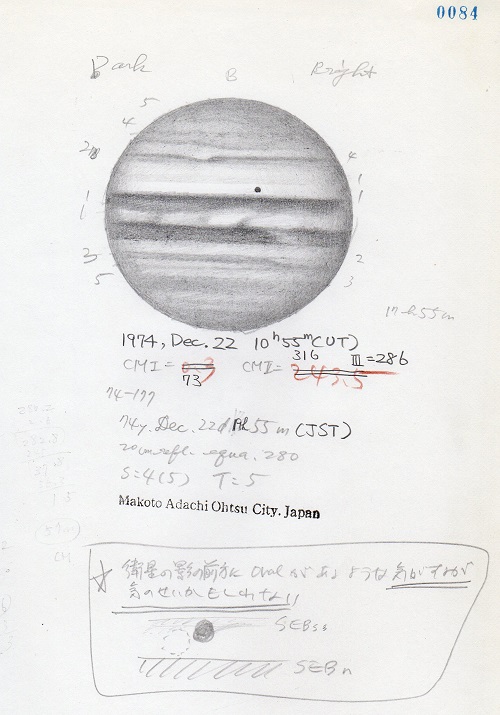 0084
Dark B Bright
5
4
2 4
1 1
1 1
3 2
5 3
17h 55m
1974, Dec. 22 10h 55m (UT)
CMI = 73 CMII = 316 243.5 III = 286
74-177
74y. Dec. 22d 19h 55m (JST)
20cm refl. equa. 280
S=4(5) T=5
Makoto Adachi Ohtsu City. Japan
CM
☆ 衛星の影の前方に oval があるような気がするが
気のせいかもしれない!!
SEBs
SEBn